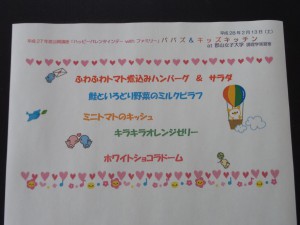 平成28年2月13日(土)
平成27年度公開講座「ハッピーバレンタインデー with ファミリー」 パパズ&キッズキッチン
at 郡山女子大学
ふわふわトマト煮込みハンバーグ & サラダ
鮭といろどり野菜のミルクピラフ
ミニトマトのキッシュ
キラキラオレンジゼリー
ホワイトショコラドーム